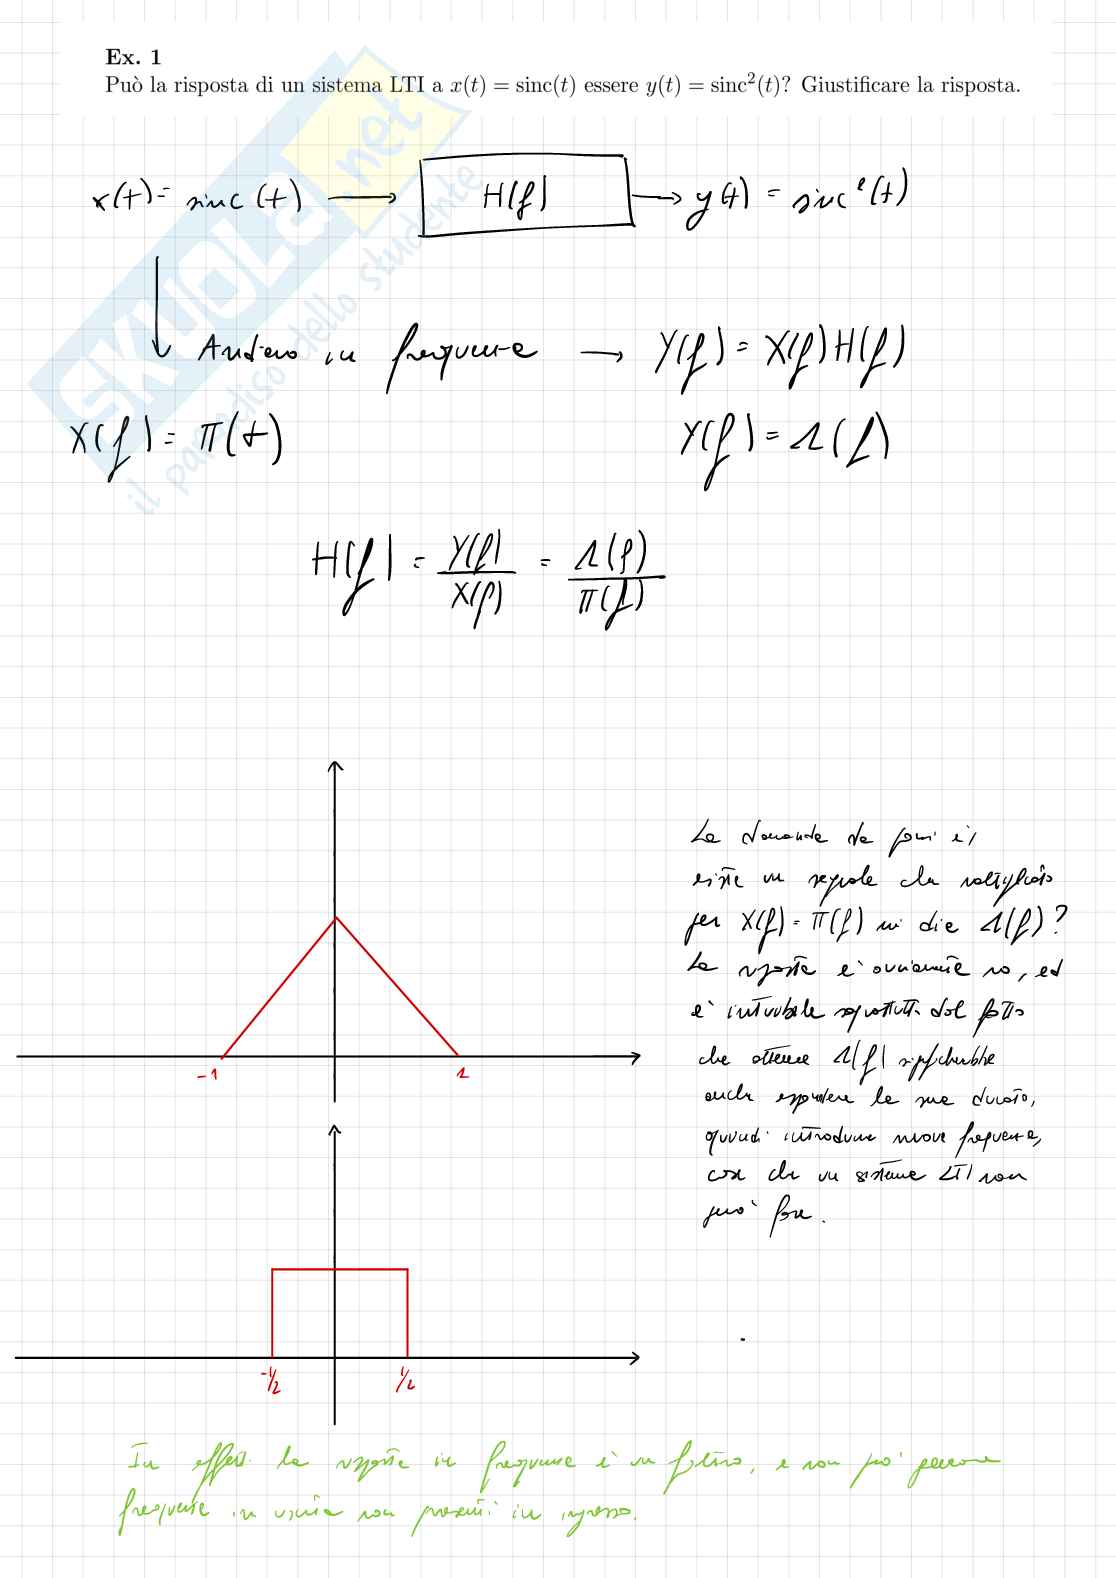 Ex. 1
Può la risposta di un sistema LTI a x(t) = sinc(t) essere y(t) = sinc²(t)? Giustificare la risposta.
x(t) = sinc(t) → H(f) → y(t) = sinc²(t)
Andiamo in frequenza → Y(f) = X(f)H(f)
X(f) = π(t)
Y(f) = Λ(f)
H(f) = Y(f)/X(f) = Λ(f)/π(f)
La domanda da porsi è,
esiste un segnale che moltiplicato
per X(f) = π(f) mi dia Λ(f)?
La risposta è ovviamente no, ed
è intuibile soprattutto dal fatto
che ottenere Λ(f) significherebbe
anche espandere la sua durata,
quindi introdurre nuove frequenze,
cosa che un sistema LTI non
può fare.
-1
1
-1/2
1/2
In effetti la risposta in frequenza è un filtro, e non può generare
frequenze in uscita non presenti in ingresso.
SKUOLA.net
il paradiso dello studente